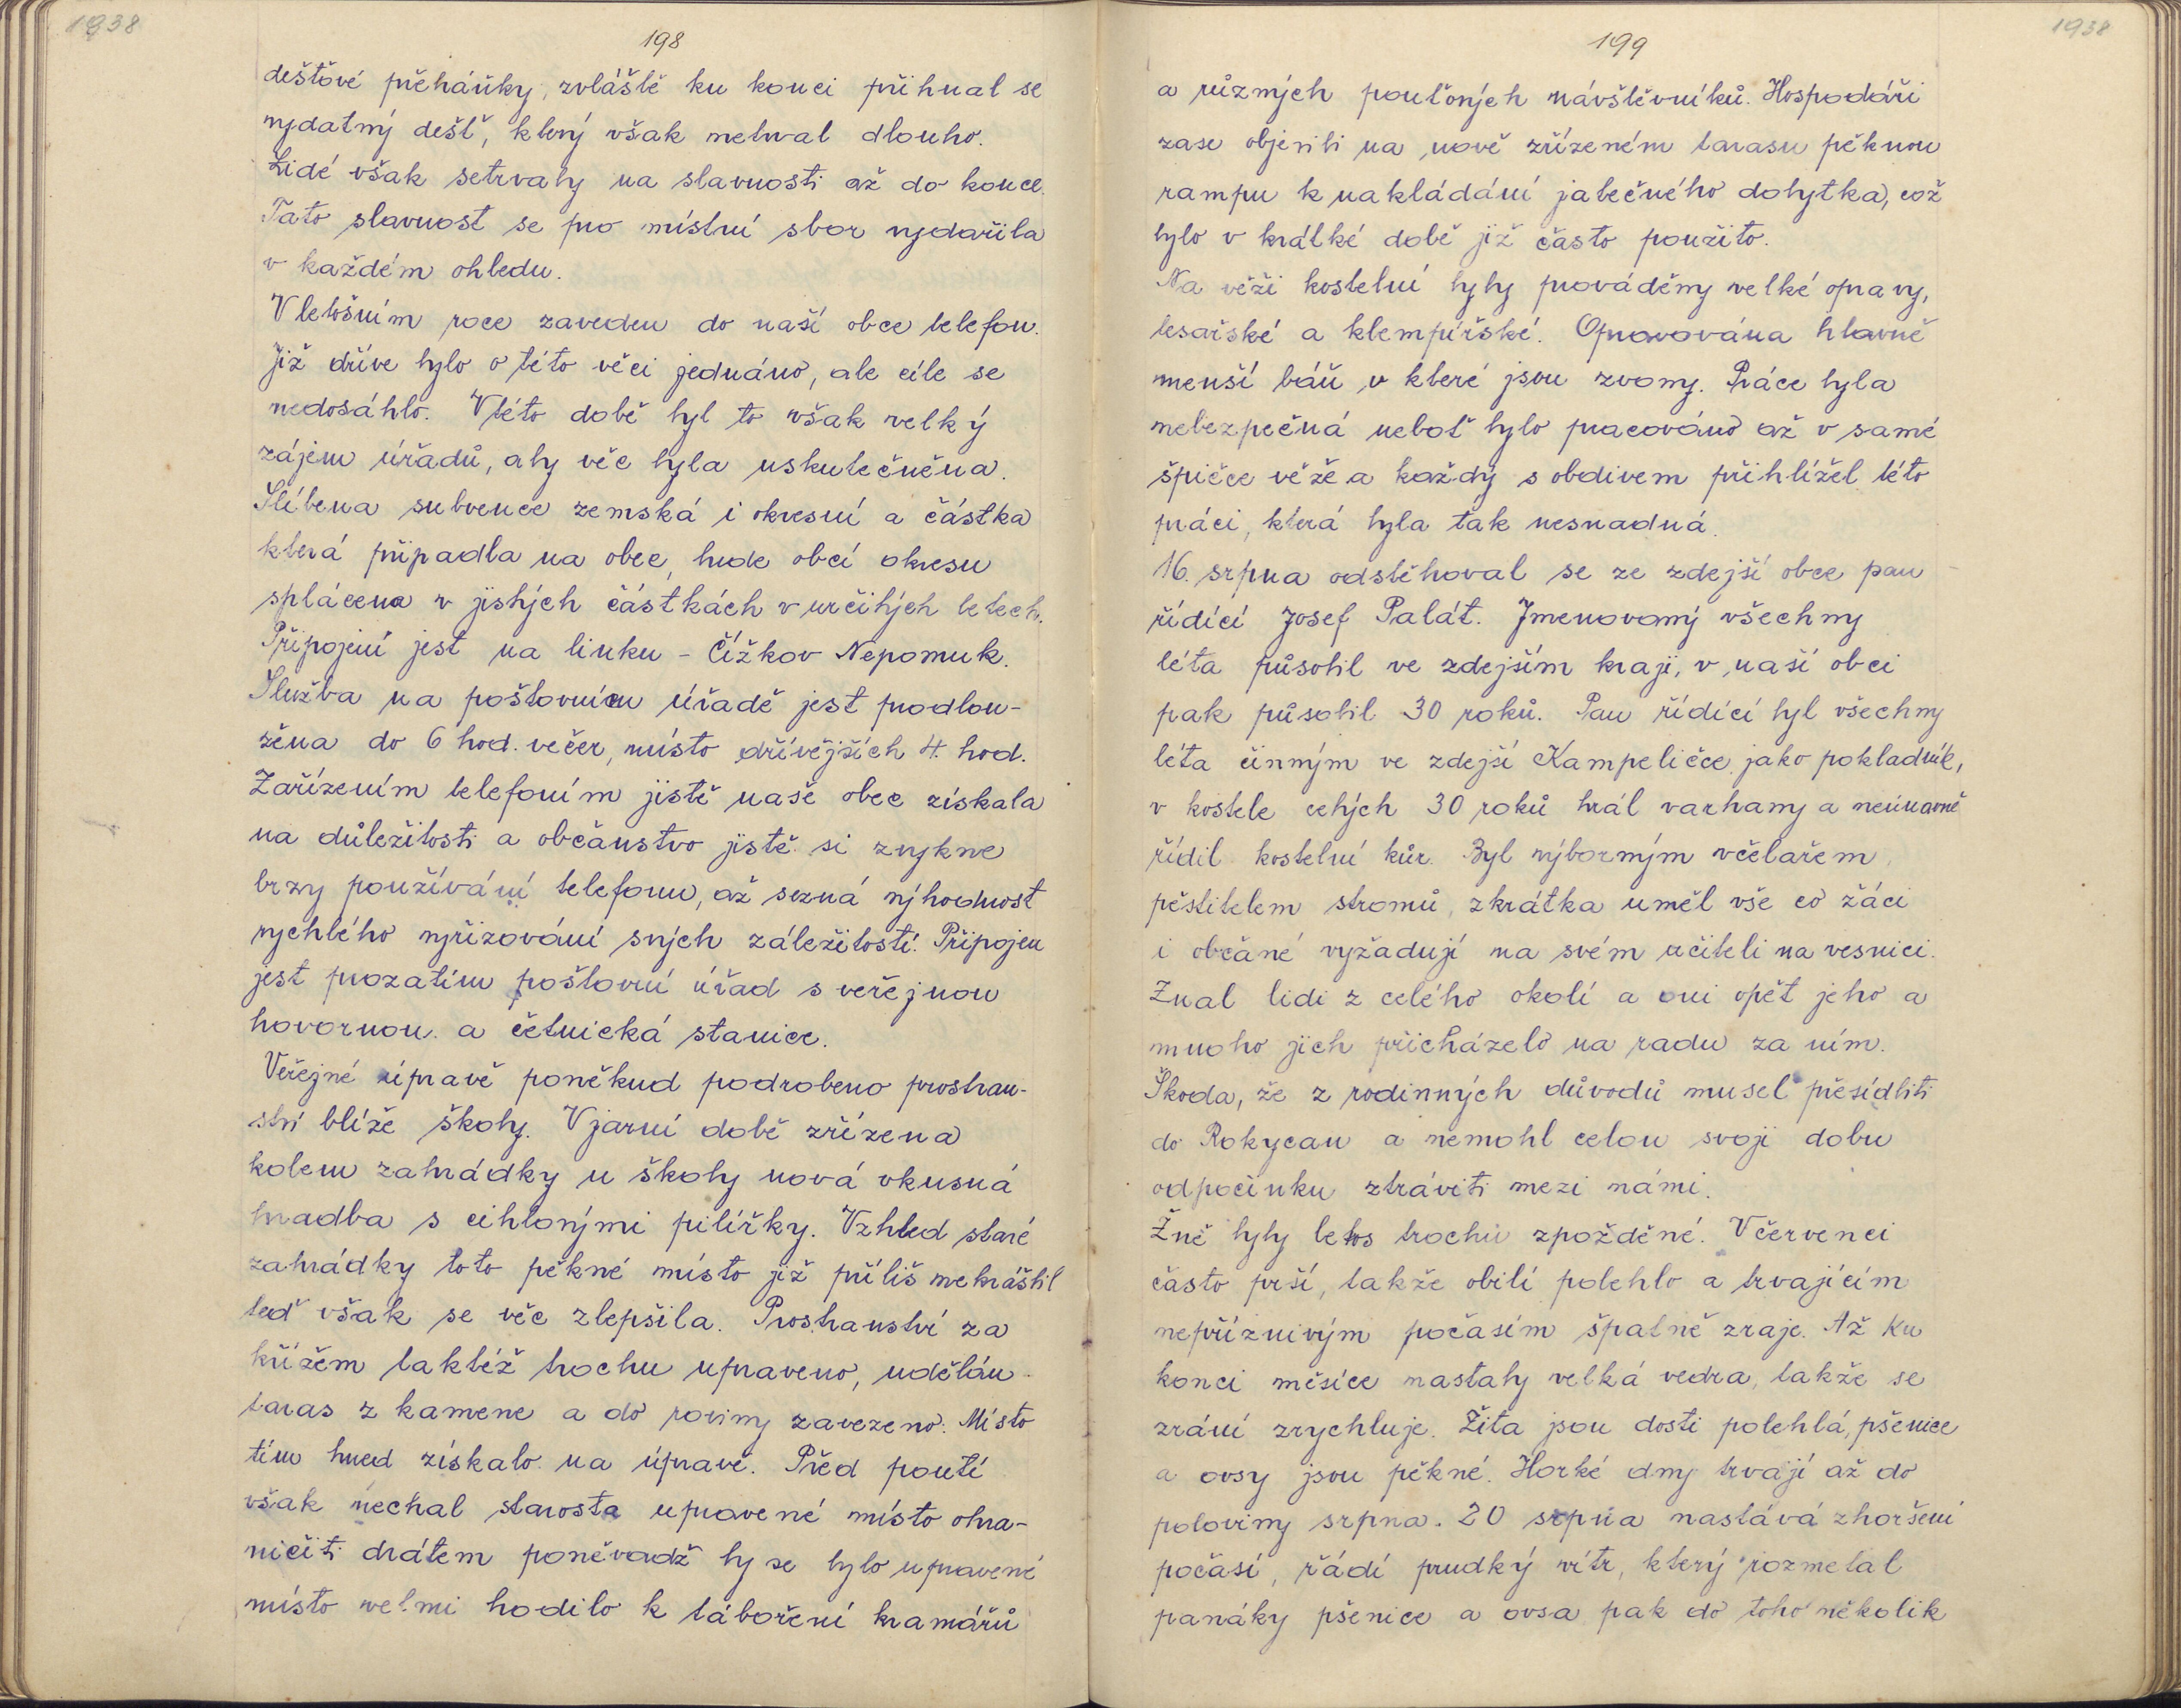 1938
198
dešťové přeháňky, zvláště ku konci přihnal se
vydatný dešť, který však netrval dlouho.
Lidé však setrvaly na slavnosti až do konce.
Tato slavnost se pro místní sbor vydařila
v každém ohledu.
V letošním roce zaveden do naší obce telefon.
Již dříve bylo o této věci jednáno, ale cíle se
nedosáhlo. V této době byl to však velký
zájem úřadů, aby věc byla uskutečněna.
Slíbena subvence zemská i okresní a částka
která připadla na obec, bude obcí okresu
splácena v jistých částkách v určitých letech.
Připojení jest na linku - Čížkov Nepomuk.
Služba na poštovním úřadě jest prodlou-
žena do 6 hod. večer, místo dřívějších 4. hod.
Zařízením telefoním jistě naše obec získala
na důležitosti a občanstvo jistě si zvykne
brzy používání telefonu, až sezná výhodnost
rychlého vyřizování svých záležitostí. Připojen
jest prozatím poštovní úřad s veřejnou
hovornou. a četnická stanice.
Veřejné úpravě poněkud podrobeno prostran-
ství blíže školy. V jarní době zřízena
kolem zahrádky u školy nová vkusná
hradba s cihlovými pilířky. Vzhled staré
zahrádky toto pěkné místo již příliš nekrášlil
teď však se věc zlepšila. Prostranství za
křížem taktéž trochu upraveno, udělán
taras z kamene a do roviny zavezeno. Místo
tím hned získalo na úpravě. Před poutí
však nechal starosta upravené místo ohra-
ničiti drátem poněvadž by se bylo upravené
místo velmi hodilo k táboření kramářů
199
1938
a různých pouťových návštěvníků. Hospodáři
zase objevili na nově zřízeném tarasu pěknou
rampu k nakládání jatečného dobytka, což
bylo v krátké době již často použito.
Na věži kostelní byly prováděny velké opravy,
tesařské a klempířské. Opravována hlavně
menší báň v které jsou zvony. Práce byla
nebezpečná neboť bylo pracováno až v samé
špičce věže a každý s obdivem přihlížel této
práci, která byla tak nesnadná.
16. srpna odstěhoval se ze zdejší obce pan
řídící Josef Palát. Jmenovaný všechny
léta působil ve zdejším kraji, v naší obci
pak působil 30 roků. Pan řídící byl všechny
léta činným ve zdejší Kampeličce jako pokladník,
v kostele celých 30 roků hrál varhany a neúnavně
řídil kostelní kůr. Byl výborným včelařem,
pěstitelem stromů, zkrátka uměl vše co žáci
i občané vyžadují na svém učiteli na vesnici.
Znal lidi z celého okolí a oni opět jeho a
mnoho jich přicházelo na radu za ním.
Škoda, že z rodinných důvodů musel přesídliti
do Rokycan a nemohl celou svoji dobu
odpočinku ztráviti mezi námi.
Žně byly letos trochu zpožděné. V červenci
často prší, takže obilí polehlo a trvajícím
nepříznivým počasím špatně zraje. Až ku
konci měsíce nastaly velká vedra, takže se
zrání zrychluje. Žita jsou dosti polehlá, pšenice
a ovsy jsou pěkné. Horké dny trvají až do
poloviny srpna. 20 srpna nastává zhoršení
počasí, řádí prudký vítr, který rozmetal
panáky pšenice a ovsa pak do toho několik